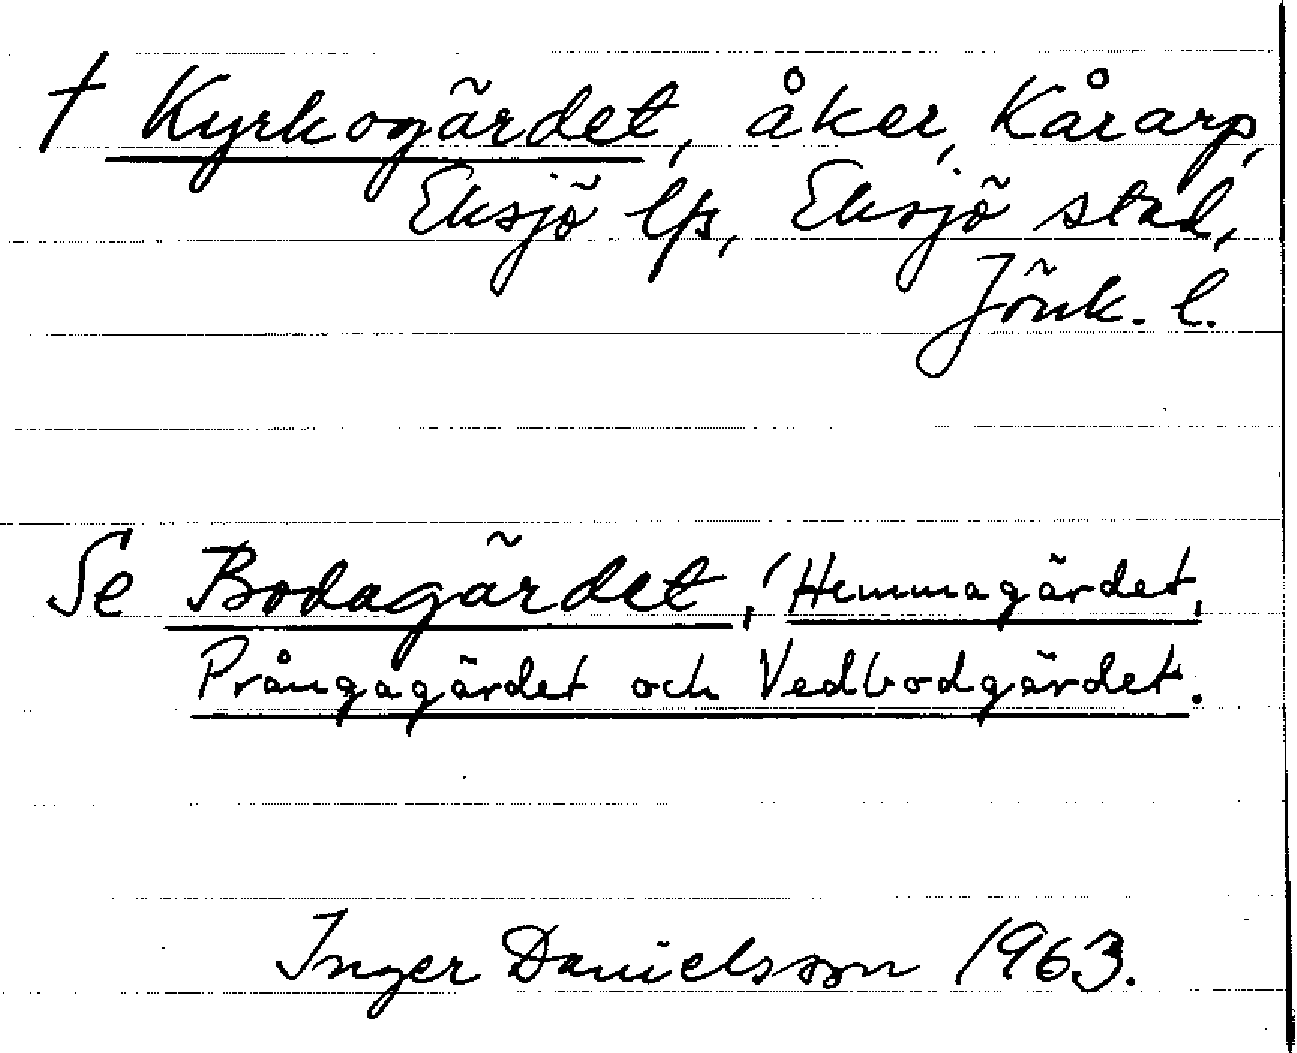 † Kyrkogärdet, åker, Kårarp,
Eksjö lfs, Eksjö stad,
Jönk. l.
Se Bodagärdet, Hemmagärdet,
Prångagärdet och Vedbodgärdet.
Inger Danielsson 1963.